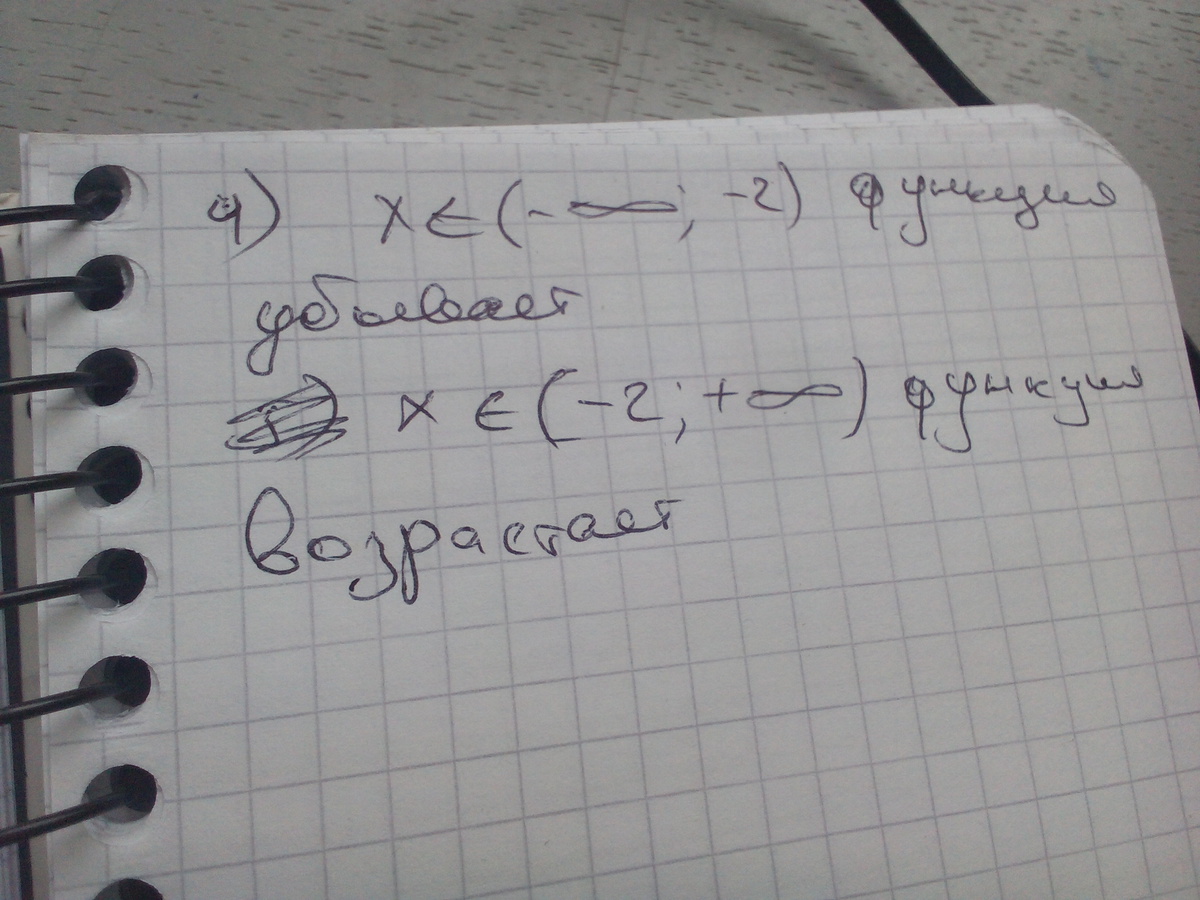 4) x ∈ (-∞; -2) функция
убывает
x ∈ (-2; +∞) функция
возрастает